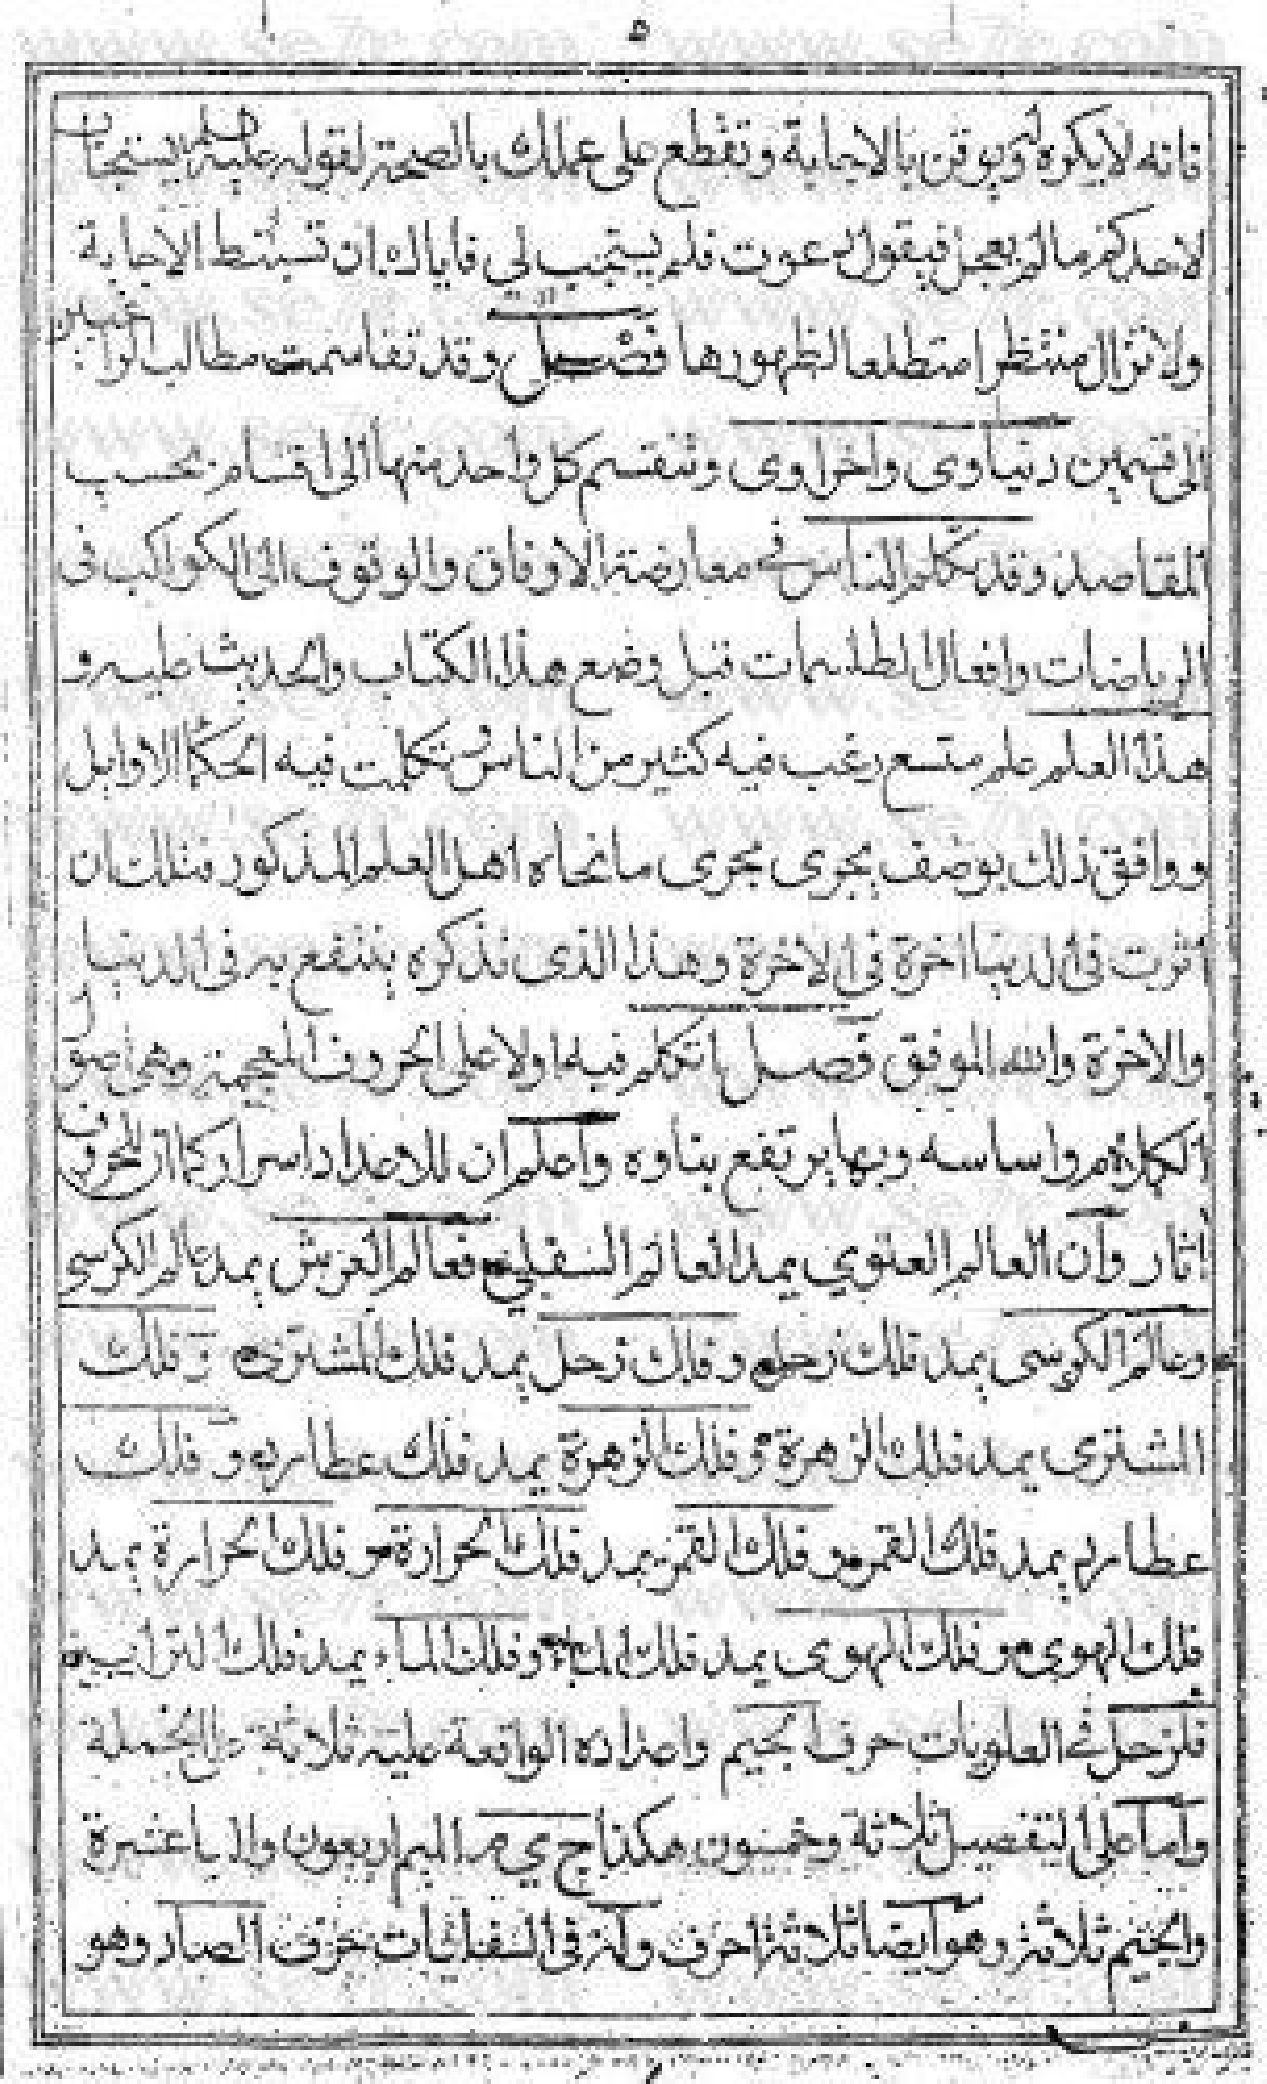 ٥
فانه لا يكره وتوقن بالاجابة وتقطع على عملك بالصحة لقوله عليه صلم يستجاب
لاحدكم مالم يعجل فيقول دعوت فلم يستجب لي فاياك ان تستبط الاجابة
ولا تزال منتظرا متطلعا لظهورها فصل وقد تقاسمت مطالب الراغبين
الى قسمين دنياوى واخراوى وتنقسم كل واحد منها الى اقسام بحسب
المقاصد وقد تكلم الناس في معارضة الاوفاق والوقوف الى الكواكب فى
الرياضات وافعال الطلسمات قبل وضع هذا الكتاب والحديث عليه و
هذا العلم علم متسع رغب فيه كثير من الناس وتكلمت فيه الحكما الاوايل
ووافق ذلك بوصف يجرى مجرى ما نحاه اهل العلم المذكور فتلك ان
اثرت فى الدنيا اخرة فى الاخرة وهذا الذى نذكره ينتفع به فى الدنيا
والاخرة والله الموفق فصل ما تتكلم فيه اولا على الحروف المعجمة وهى اصول
الكلام واساسه وبها يرتفع بناوه واعلم ان للاعداد اسرار كما ان للحروف
اثار وان العالم العلوي يمد العالم السفلي فعالم العرش يمد عالم الكرسي
وعالم الكرسى يمد فلك زحل وفلك زحل يمد فلك المشترى وفلك
المشترى يمد فلك الزهرة وفلك الزهرة يمد فلك عطارد وفلك
عطارد يمد فلك القمر وفلك القمر يمد فلك الحرارة وفلك الحرارة يمد
فلك الهوى وفلك الهوى يمد فلك الماء وفلك الماء يمد فلك التراب
فلزحل في العلويات حرف الجيم واعداده الواقعة عليه ثلاثة على الجملة
واما على التفصيل ثلاثة وخمسون هكذا ج ي م الميم اربعون واليا عشرة
والجيم ثلاثة وهو ايضا ثلاثة احرف وله فى السفليات حرف الصاد وهو